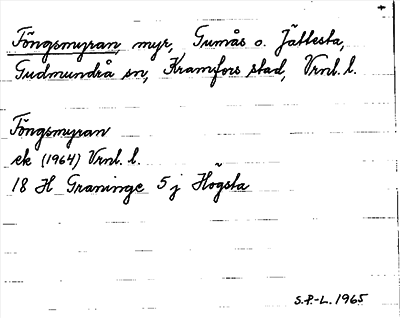 Föngsmyran, myr, Gumås o. Jättesta,
Gudmundrå sn, Kramfors stad, Vrnl. l.
Föngsmyran
ek (1964) Vrnl. l.
18 H Graninge 5 j Högsta
S.P.-L. 1965